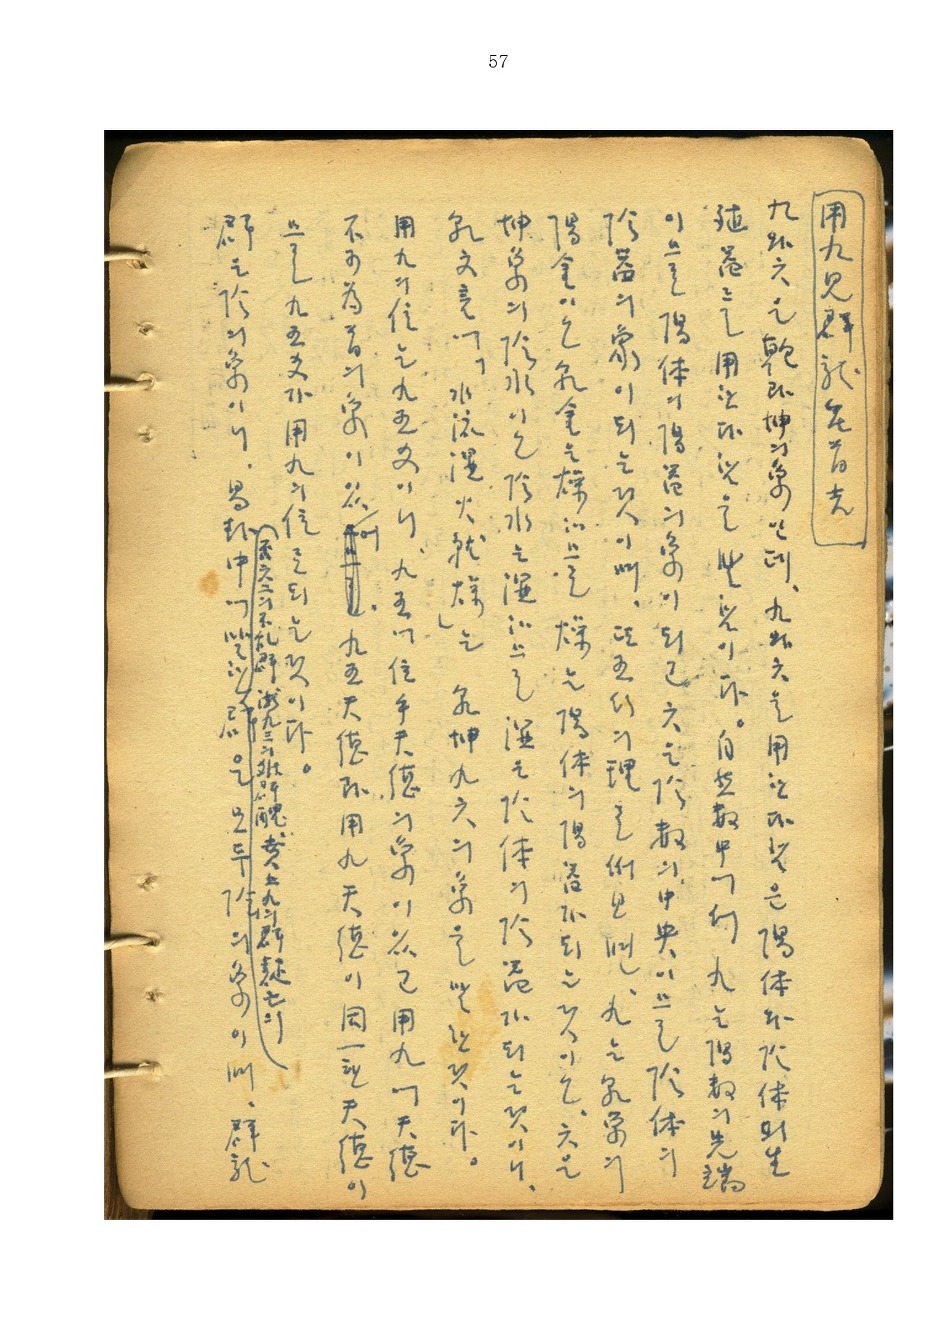 57
用九見群龍无首吉
九와 六은 乾과 坤의 象인데、九와 六을 用한다 함은 陽体와 陰体의 生
殖器를 用한다 함을 말함이다。自然数中에서 九는 陽数의 先端
이므로 陽体의 陽器의 象이 되고 六은 陰数의 中央이므로 陰体의
陰器의 象이 되는 것이며、또 五行의 理로써 보면、九는 乾象의
陽金이오 乾金은 燥하므로 燥는 陽体의 陽器가 되는 것이오、六은
坤象의 陰水이오 陰水는 濕하므로 濕은 陰体의 陰器가 되는 것이니、
乾文言에「水流濕火就燥」는 乾坤九六의 象을 말한 것이다。
用九의 位는 九五爻이니、九五에 位乎天德의 象이 있고 用九에 天德
不可為首의 象이 있어、九五天德과 用九天德이 同一한 天德이
므로 九五爻가 用九의 位로 되는 것이다。
群은 陰의 象이니、易卦中에 말한 群은 모두 陰의 象이며、群龍
(否六二의 不乱群 漸九三의 離群醜 睽上九의 群疑亡의